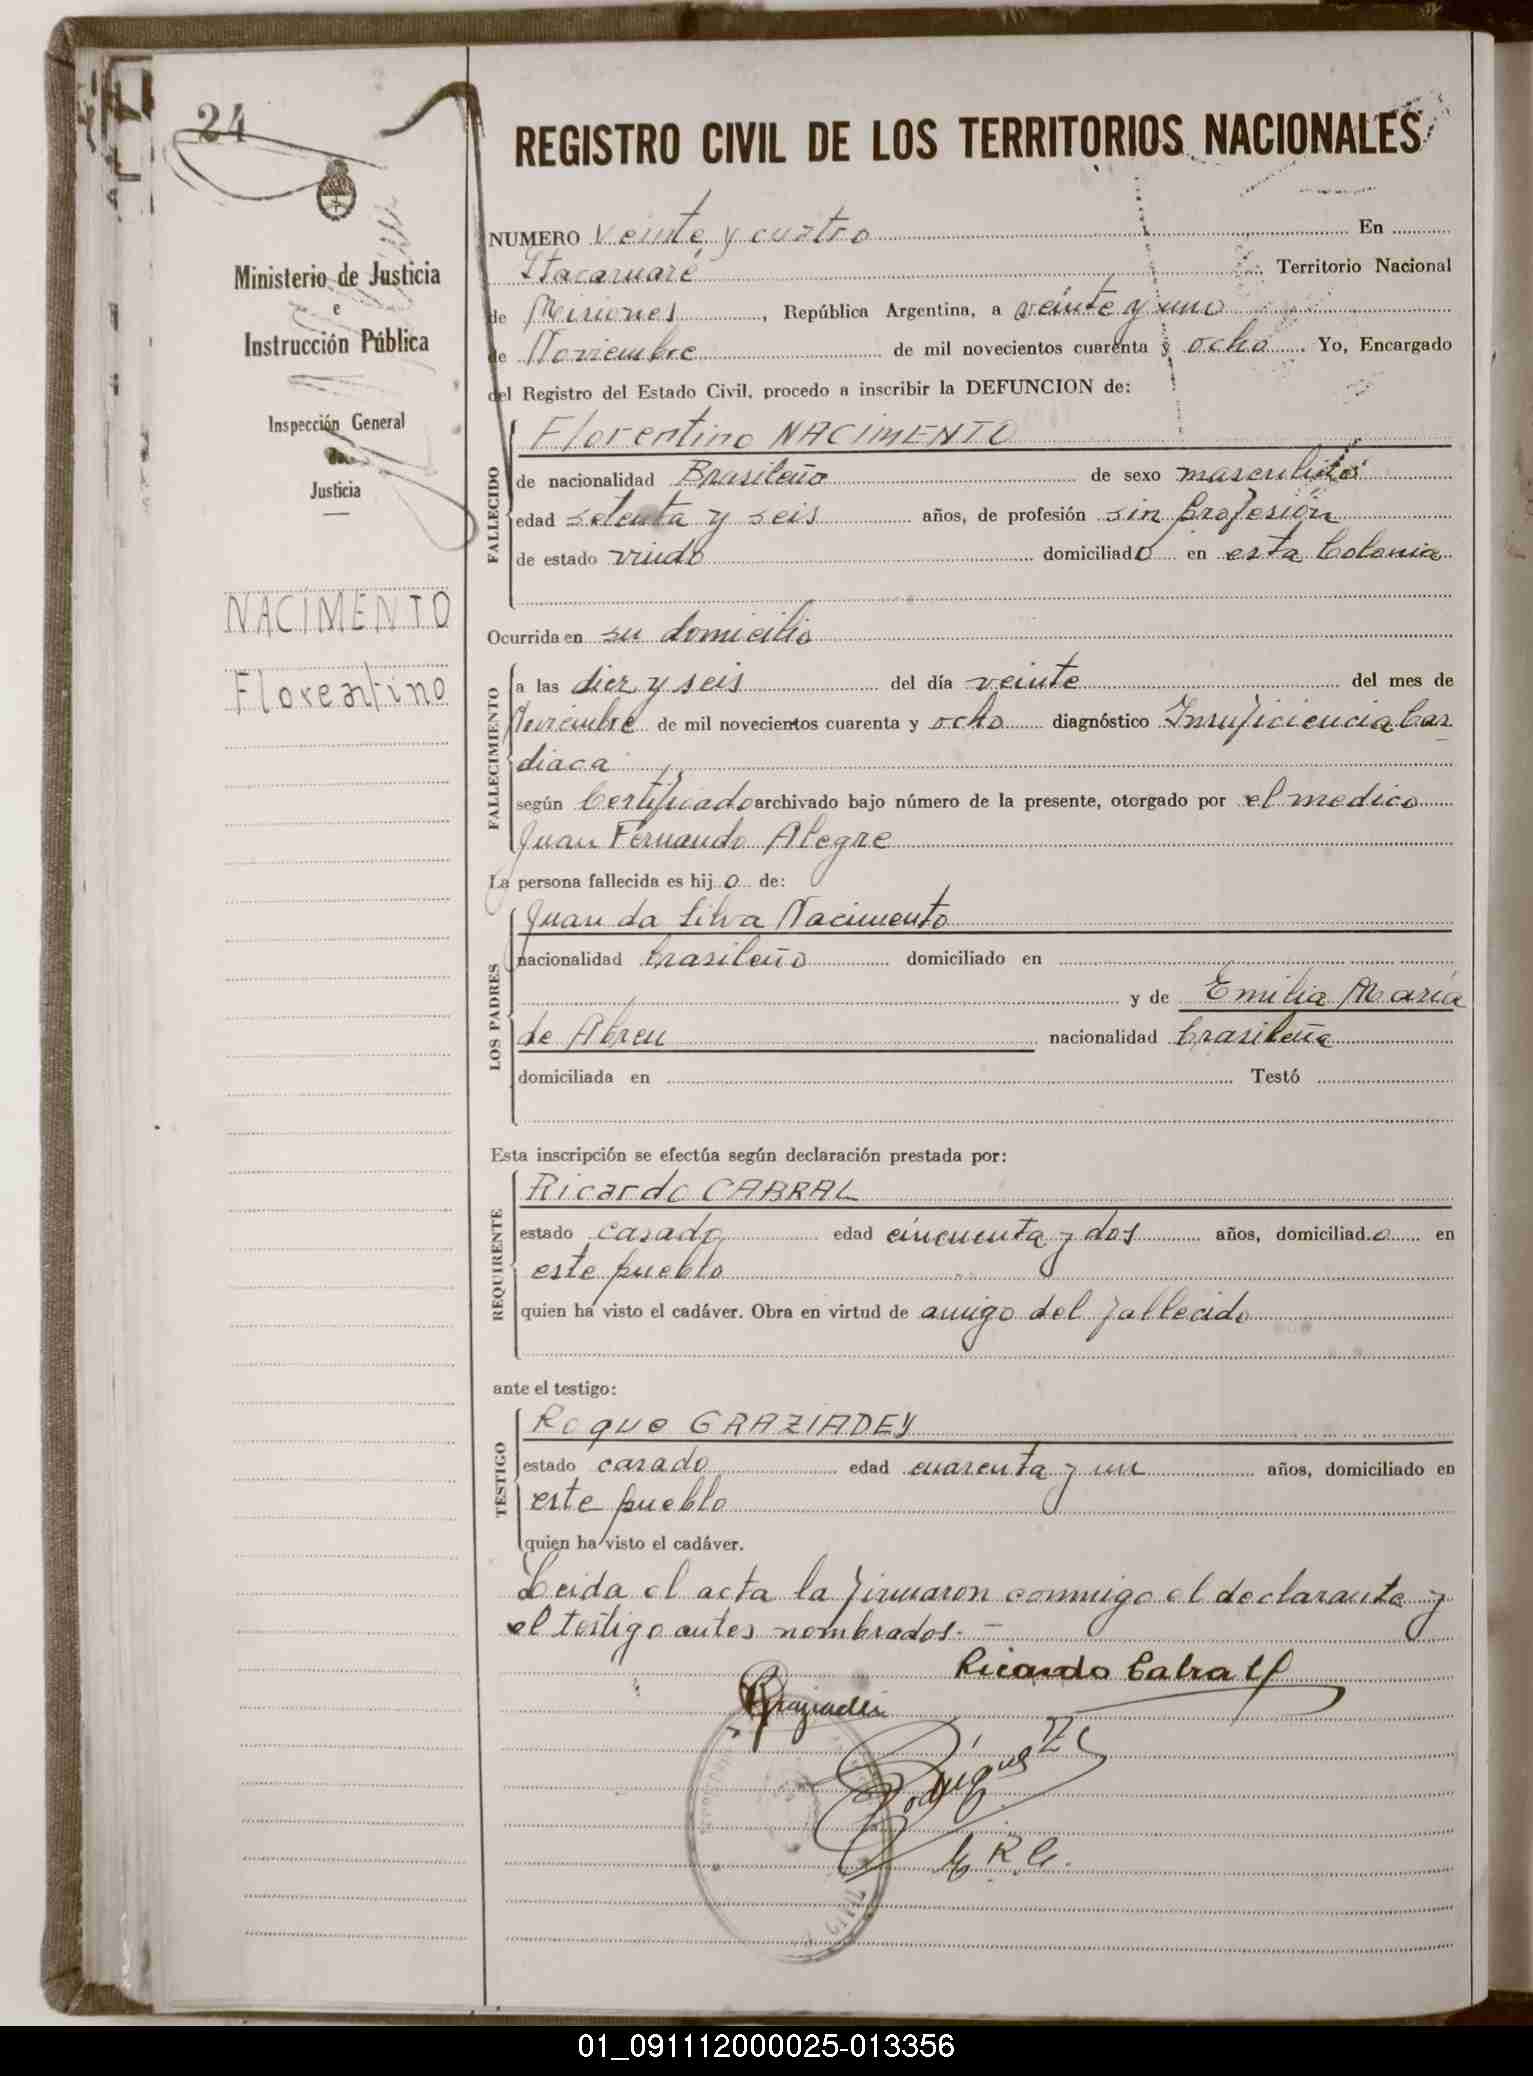 24
REGISTRO CIVIL DE LOS TERRITORIOS NACIONALES
Ministerio de Justicia
e
Instrucción Pública
Inspección General
de
Justicia
NACIMENTO
Florentino
NUMERO veinte y cuatro En
Itacaruaré Territorio Nacional
de Misiones, República Argentina, a veinte y uno
de Noviembre de mil novecientos cuarenta y ocho. Yo, Encargado
del Registro del Estado Civil, procedo a inscribir la DEFUNCION de:
FALLECIDO
Florentino NACIMENTO
de nacionalidad Brasileño de sexo masculino
edad setenta y seis años, de profesión sin profesión
de estado viudo domiciliado en esta Colonia
Ocurrida en su domicilio
FALLECIMIENTO
a las diez y seis del día veinte del mes de
Noviembre de mil novecientos cuarenta y ocho diagnóstico Insuficiencia Car
diaca
según Certificado archivado bajo número de la presente, otorgado por el medico
Juan Fernando Alegre
La persona fallecida es hijo de:
LOS PADRES
Juan da Silva Nacimento
nacionalidad brasileño domiciliado en
y de Emilia Maria
de Abreu nacionalidad brasileña
domiciliada en Testó
Esta inscripción se efectúa según declaración prestada por:
REQUIRENTE
Ricardo CABRAL
estado casado edad cincuenta y dos años, domiciliado en
este pueblo
quien ha visto el cadáver. Obra en virtud de amigo del fallecido
ante el testigo:
TESTIGO
Roque GRAZIADEY
estado casado edad cuarenta y un años, domiciliado en
este pueblo
quien ha visto el cadáver.
Leida el acta la firmaron conmigo el declarante y
el testigo antes nombrados. —
Ricardo Cabral
Graziadei
Rodríguez
E. R. C.
01_091112000025-013356